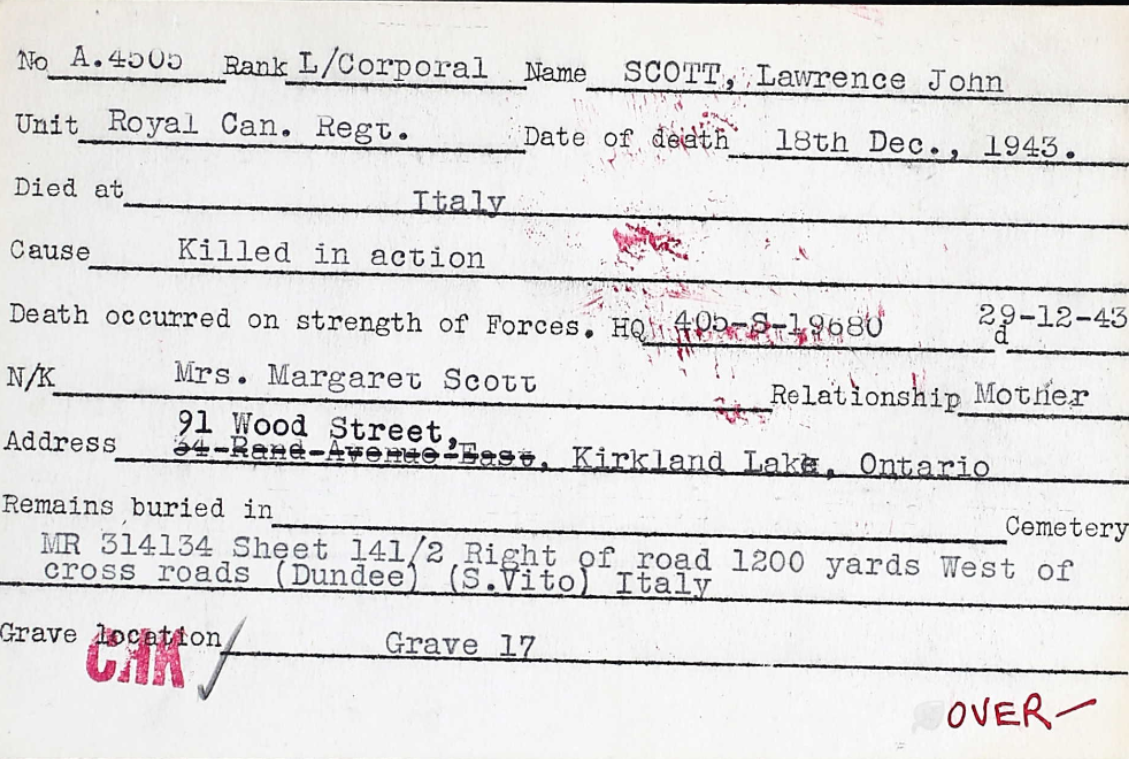 No A.4505 Rank L/Corporal Name SCOTT, Lawrence John
Unit Royal Can. Regt. Date of death 18th Dec., 1943.
Died at Italy
Cause Killed in action
Death occurred on strength of Forces. HQ 405-S-19680 d 29-12-43
N/K Mrs. Margaret Scott Relationship Mother
91 Wood Street,
Address 64 Rand Avenue East, Kirkland Lake, Ontario
Remains buried in Cemetery
MR 314134 Sheet 141/2 Right of road 1200 yards West of
cross roads (Dundee) (S.Vito) Italy
Grave location Grave 17
OVER